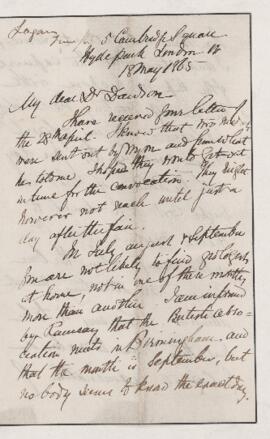 Logan
5 Cambridge Square
Hyde Park London W
18 May 1865
My dear Dr Dawson
I have received your letter of
the 28 April. I know that
were sent out by
he told me. I hoped they would get out
in time for the convocation. They might
however not reach until just a
day after the fair.
In July August & September
you are not likely to find geologists
at home, not in one of these months
more than another. I am informed
by Ramsay that the British Asso-
ciation meets in Birmingham, and
that the month is September, but
no body seems to know the exact day.